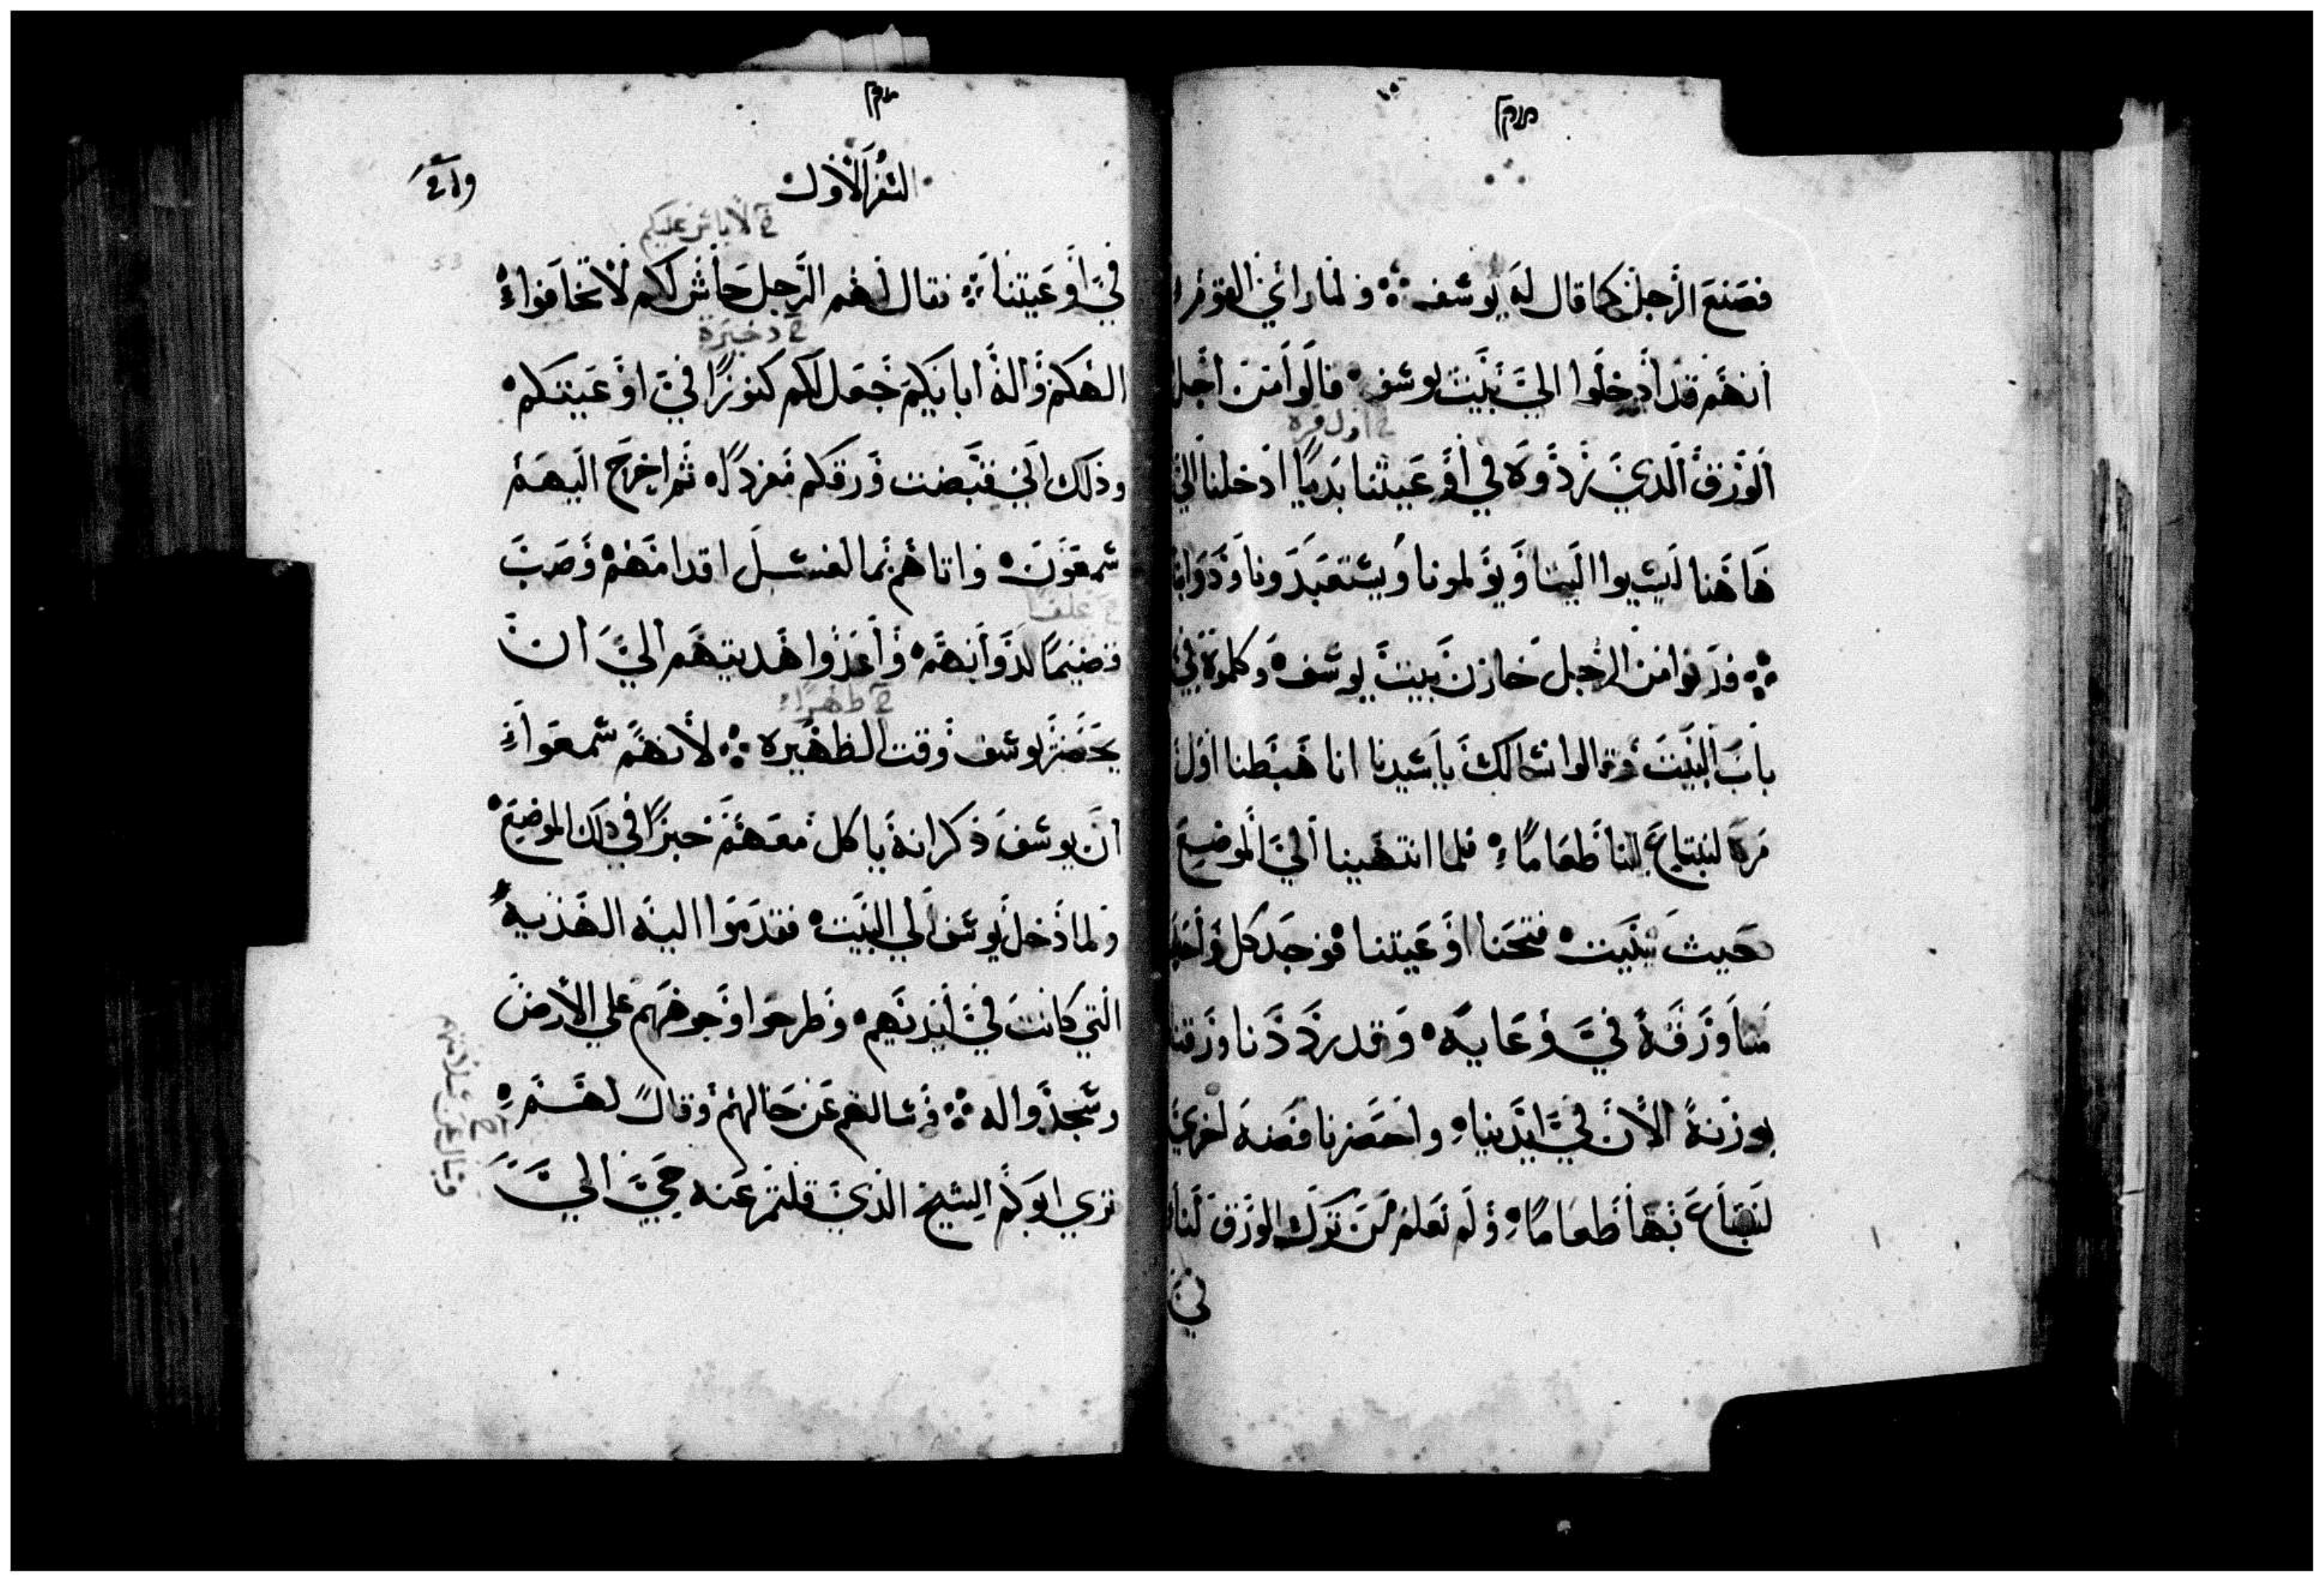 فصنع الرجل كما قال له يوسف ؞ ولما رأي القوم
انهم قد ادخلوا الي بيت يوسف ۰ قالوا من اجل
خ اول مرة
الورق الذي ردوه في اوعيتنا بديا ادخلنا الي
هاهنا ليشيوا الينا ويولمونا ويستعبدونا ودوابنا
؞ فدنوا من الرجل خازن بيت يوسف ۰ وكلموه في
باب البيت وقالوا نسالك يا سيدنا انا هبطنا اول
مرة لنبتاع لنا طعاما ۰ فلما انتهينا الي الموضع
حيث نبيت ۰ فتحنا اوعيتنا فوجد كل واحد
منا ورقه في وعايه ۰ وقد رددنا ورقنا
بوزنه الان في ايدينا ۰ واحضرنا فضه اخري
لنبتاع بها طعاما ۰ ولم نعلم من ترك الورق لنا
في
السفر الاول
خ لا باس عليكم
في اوعيتنا ؞ فقال لهم الرجل حاش لكم لا تخافوا ۰
خ دخيرة
الهكم واله ابايكم جعل لكم كنوزا في اوعيتكم ۰
وذلك اني قبضت ورقكم مفردا ۰ ثم اخرج اليهم
شمعون ۰ واتاهم بما لغسل اقدامهم وصب
خ علفا
قضيما لدوابهم ۰ واعدوا هديتهم الي ان
خ ظهرا
يحضر يوسف وقت الظهيره ؞ لانهم سمعوا
ان يوسف ذكر انه ياكل معهم خبزا في ذلك الموضع ۰
ولما دخل يوسف الي البيت ۰ فقدموا اليه الهديه
التي كانت في ايديهم ۰ وطرحوا وجوههم علي الارض
وسجدوا له ؞ فسالهم عن حالهم وقال لهم ۰
تري ابوكم الشيخ الذي قلتم عنه حي الي
خ
وسالهم عن سلامتهم